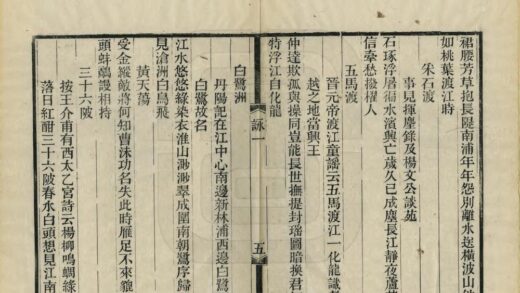 裙腰芳草抱長隄南浦年年怨別離水送橫波山
如桃葉渡江時
采石渡
事見揮麈錄及楊文公談苑
石琢浮屠搨水濱興亡歲久已成塵長江靜夜蘆
信牽愁撥櫂人
五馬渡
晉元帝渡江童謠云五馬渡江一化龍識
越之地當興王
仲達欺孤與操同豈能長世撫提封瑤圖暗換君
特浮江自化龍
詠一 五
白鷺洲
丹陽記在江中心南邊新林浦西邊白鷺
白鷺故名
江水悠悠綠染衣淮山渺渺翠成圍南朝鷺序歸
見滄洲白鳥飛
黃天蕩
受金縱敵將何知曹沫功名失此時雁足不來貔
頭蚌鷸謾相持
三十六陂
按王介甫有西太乙宮詩云楊柳鳴蜩綠
落日紅酣三十六陂春水白頭想見江南